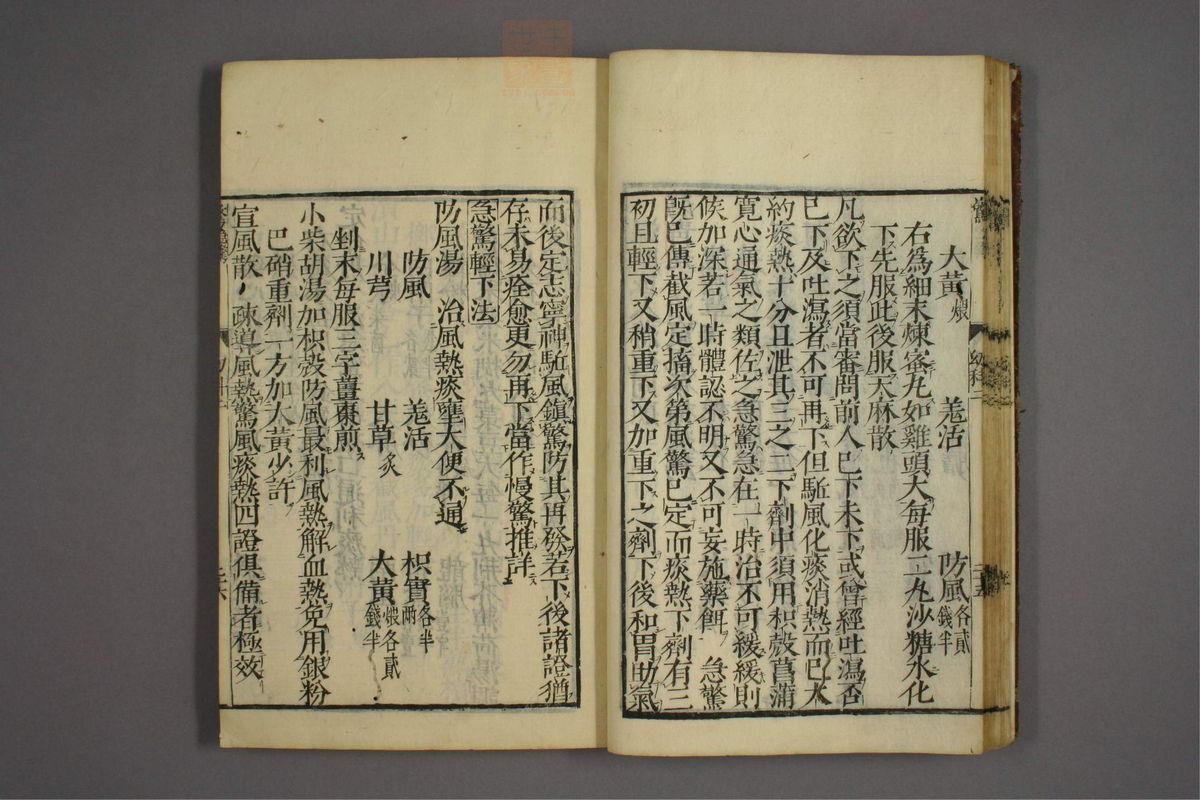 大黃煨　羗活　防風各貳錢半
右爲細末煉蜜丸如雞頭大每服一丸沙糖水化
下先服此後服天麻散
凡欲下之須當審問前人已下未下或曾經吐瀉否
已下及吐瀉者不可再下但駈風化痰消熱而已大
約痰熱十分且泄其三之二下劑中須用枳殼菖蒲
寬心通氣之類佐之急驚急在一時治不可緩緩則
候加深若一時體認不明又不可妄施藥餌　急驚
旣已傳截風定搐次第風驚已定而痰熱下劑有三
初且輕下又稍重下又加重下之劑下後和胃助氣
而後定志寧神駈風鎭驚防其再發若下後諸證猶
存未易痊愈更勿再下當作慢驚推詳
急驚輕下法
防風湯　治風熱痰壅大便不通
防風　羗活　枳實各半兩
川芎　甘草炙　大黃煨各貳錢半
剉末每服三字薑棗煎
小柴胡湯加枳殼防風最利風熱解血熱免用銀粉
巴硝重劑一方加大黃少許
宣風散　疎導風熱驚風痰熱四證俱備者極效